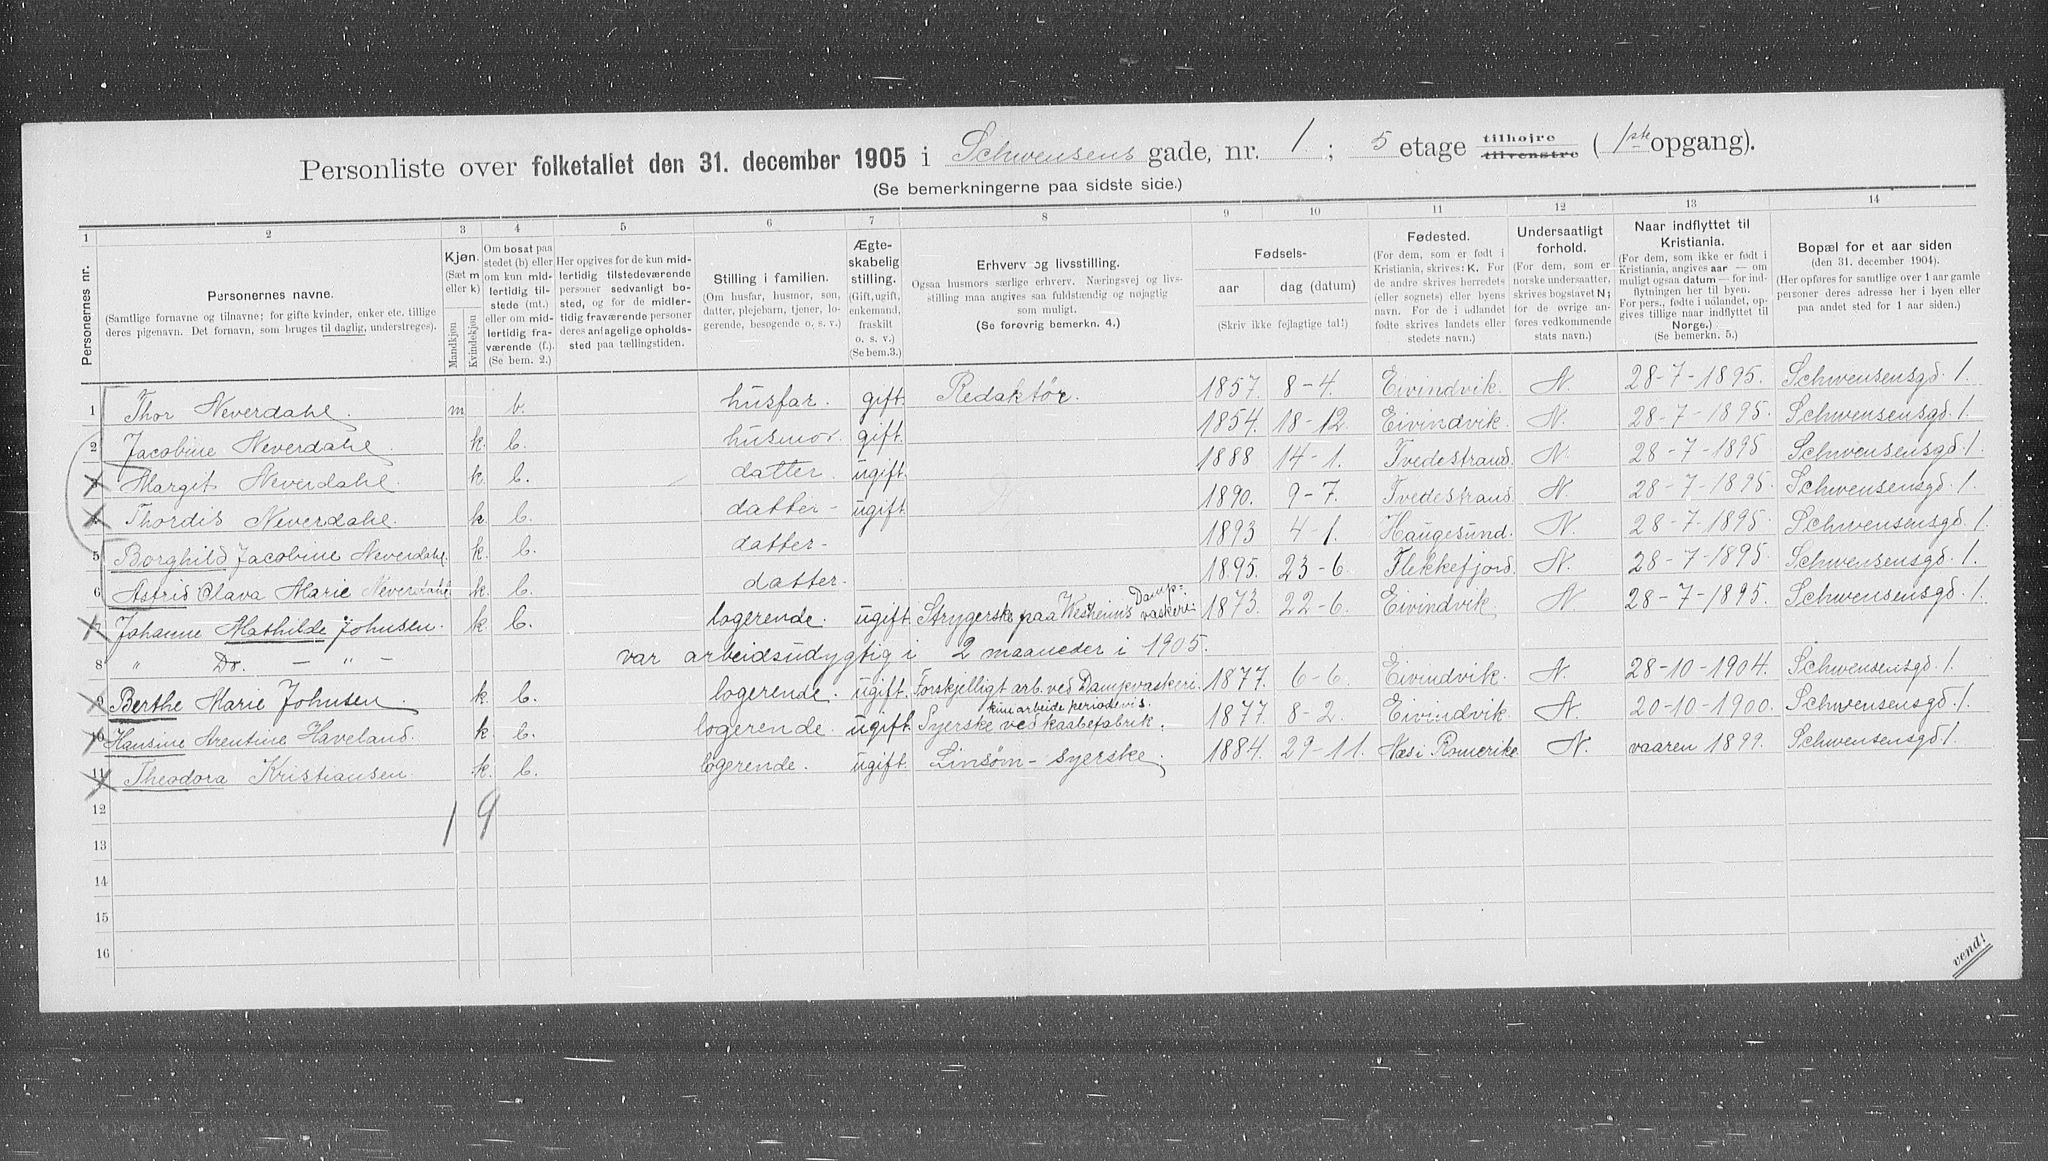 Personliste over folketallet den 31. december 1905 i Schwensens gade, nr. 1; 5 etage tilhøjre tilvenstre (1ste opgang).
(Se bemerkningerne paa sidste side.)
1 2 3 4 5 6 7 8 9 10 11 12 13 14
Personernes nr.
Personernes navne.
(Samtlige fornavne og tilnavne; for gifte kvinder, enker etc. tillige deres pigenavn. Det fornavn, som bruges til daglig, understreges).
Kjøn.
(Sæt m eller k)
Mandkjøn
Kvindekjøn
Om bosat paa stedet (b) eller om kun midlertidig tilstede (mt.) eller om midlertidig fraværende (f.). (Se bem. 2.)
Her opgives for de kun midlertidig tilstedeværende personer sedvanligt bosted, og for de midlertidig fraværende personer deres antagelige opholdssted paa tællingstiden.
Stilling i familien.
(Om husfar, husmor, søn, datter, plejebarn, tjener, logerende, besøgende o, s. v.)
Ægteskabelig stilling.
(Gift, ugift, enkemand, fraskilt o. s. v.) (Se bem.3.)
Erhverv og livsstilling.
Ogsaa husmors særlige erhverv. Næringsvej og livsstilling maa angives saa fuldstændig og nøjagtig som muligt.
(Se forøvrig bemerkn. 4.)
Fødsels-
aar
dag (datum)
(Skriv ikke fejlagtige tal!)
Fødested.
(For dem, som er født i Kristiania, skrives: K. For de andre skrives herredets (eller sognets) eller byens navn. For de i udlandet fødte skrives landets eller stedets navn.)
Undersaatligt forhold.
(For dem, som er norske undersaatter, skrives bogstavet N; for de øvrige anføres vedkommende stats navn.)
Naar indflyttet til Kristiania.
(For dem, som ikke er født i Kristiania, angives aar — om muligt ogsaa datum — for indflytningen her til byen. For pers., fødte i udlandet, opgives tillige naar indflyttet til Norge.)
(Se bemerkn. 5.)
Bopæl for et aar siden
(den 31. december 1904).
(Her opføres for samtlige over 1 aar gamle personer deres adresse her i byen eller paa andet sted for 1 aar siden.)
1 Thor Neverdahl. m b. husfar. gift. Redaktør. 1857. 8-4. Eivindvik. N. 28-7-1895. Schwensensgd. 1.
2 Jacobine Neverdahl. k. b. husmor. gift. 1854. 18-12. Eivindvik. N. 28-7-1895. Schwensensgd. 1.
3 Margit Neverdahl. k. b. datter ugift. 1888 14-1. Tvedestrand. N. 28-7-1895 Schwensensgd. 1.
4 Thordis Neverdahl. k b. datter - ugift 1890. 9-7. Tvedestrand. N. 28-7-1895. Schwensensgd. 1.
5 Borghild Jacobine Neverdahl. k. b. datter- 1893 4-1. Haugesund. N. 28-7-1895. Schwensensgd. 1.
6 Astrid Clava Marie Neverdahl k. b. datter. 1895. 23-6. Flekkefjord. N. 28-7-1895. Schwensensgd. 1.
7 Johanne Mathilde Johnsen. k b. logerende. ugift. Strygerske paa Damp- vaskeri 1873. 22-6. Eivindvik N 28-7-1895. Schwensensgd. 1.
8 " Do. - " - var arbeidsudygtig i 2 maaneder i 1905.
9 Berthe Marie Johnsen k. b. logerende. ugift. Forskjelligt arb. ved Dampvaskeri. 1877. 6-6. Eivindvik. N. 28-10-1904. Schwensensgd. 1.
kun arbeide periodevis.
10 Hansine Arentine Haveland. k. b. logerende. ugift. Syerske ved kaabefabrik. 1877. 8-2. Eivindvik N. 20-10-1900. Schwensensgd. 1.
11 Theodora Kristiansen. k. b. logerende. ugift. Linsøm-syerske. 1884. 29-11. Næs i Romerike N. vaaren 1899. Schwensensgd 1.
12 1 9
13
14
15
16
vend!